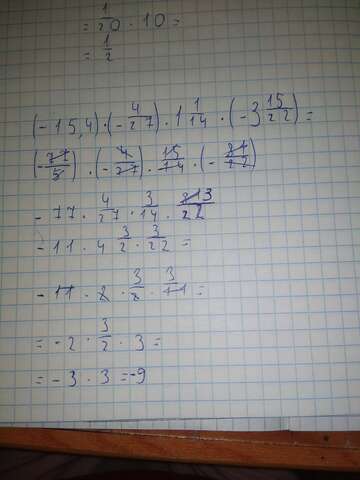 = 1/20 · 10 =
= 1/2
(-15,4) · (-4/27) · 1 1/14 · (-3 15/22) =
(-77/5) · (-4/27) · 15/14 · (-81/22)
-77 · 4/27 · 3/14 · 813/22
-11 · 4 3/2 · 3/22 =
-11 · 2 · 3/2 · 3/11 =
= -2 · 3/2 · 3 =
= -3 · 3 = -9